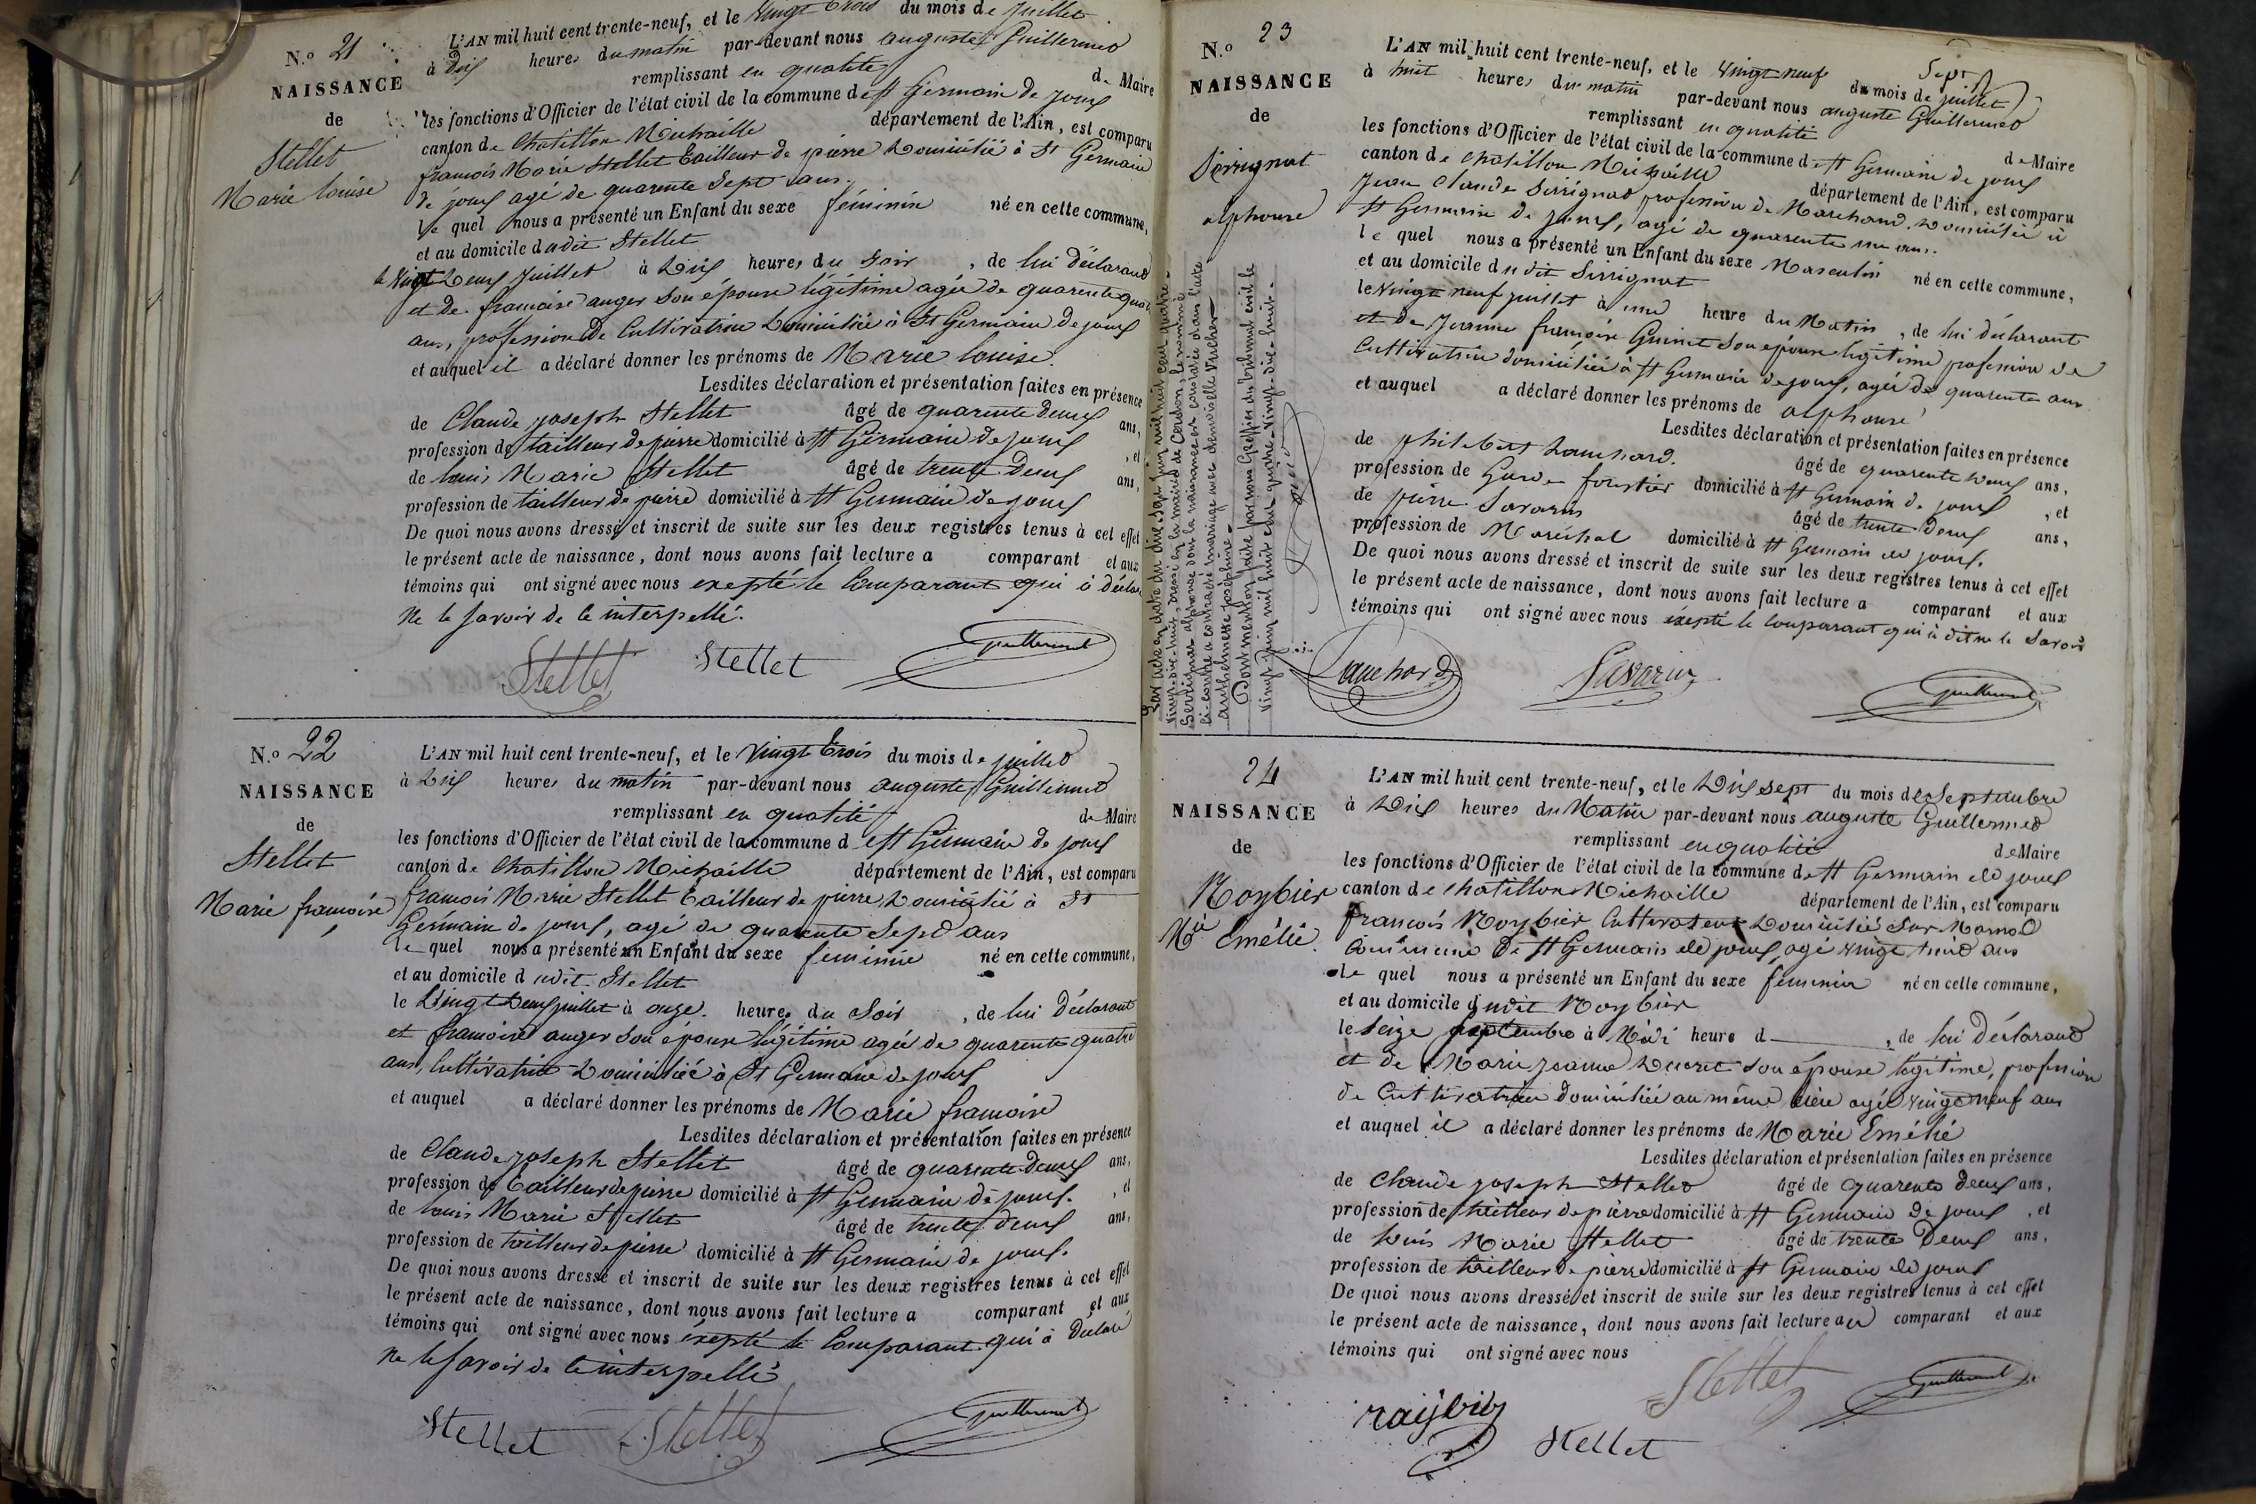 N.º 21
NAISSANCE
de
Stellet
Marie louise
L'AN mil huit cent trente-neuf, et le vingt trois du mois de juillet
à dix heures du matin par-devant nous auguste Guillermet
remplissant en qualité de Maire
les fonctions d'Officier de l'état civil de la commune de st Germain de joux
canton de Chatillon Michaille département de l'Ain, est comparu
françois Marie Stellet tailleur de pierre domicilié à St Germain
de joux agé de quarente sept ans.
le quel nous a présenté un Enfant du sexe féminin né en cette commune,
et au domicile dudit Stellet
le vingt deux juillet à dix heures du soir, de lui déclarant
et de françoise auger son épouse légitime agée de quarente quatre
ans, profession de Cultivatrice domiciliée à St Germain de joux
et auquel il a déclaré donner les prénoms de Marie louise.
Lesdites déclaration et présentation faites en présence
de Claude joseph Stellet âgé de quarente deux ans,
profession de tailleur de pierre domicilié à st Germain de joux, et
de louis Marie Stellet âgé de trente deux ans,
profession de tailleur de pierre domicilié à st Germain de joux
De quoi nous avons dressé et inscrit de suite sur les deux registres tenus à cet effet
le présent acte de naissance, dont nous avons fait lecture a comparant et aux
témoins qui ont signé avec nous exepté le Comparant qui à déclaré
ne le savoir de ce interpellé.
Stellet Stellet Guillermet
N.º 22
NAISSANCE
de
Stellet
Marie françoise
L'AN mil huit cent trente-neuf, et le vingt trois du mois de juillet
à dix heures du matin par-devant nous auguste Guillermet
remplissant en qualité de Maire
les fonctions d'Officier de l'état civil de la commune de st Germain de joux
canton de Chatillon Michaille département de l'Ain, est comparu
françois Marie Stellet tailleur de pierre, domicilié à St
Germain de joux, agé de quarente sept ans
le quel nous a présenté un Enfant du sexe feminin né en cette commune,
et au domicile dudit Stellet
le vingt deux juillet à onze heures du soir, de lui déclarant
et françoise auger son épouse légitime agée de quarente quatre
ans, Cultivatrice domiciliée à St Germain de joux
et auquel a déclaré donner les prénoms de Marie françoise
Lesdites déclaration et présentation faites en présence
de Claude joseph Stellet âgé de quarente deux ans,
profession de tailleur de pierre domicilié à st Germain de joux. , et
de louis Marie Stellet âgé de trente deux ans,
profession de tailleur de pierre domicilié à st Germain de joux.
De quoi nous avons dressé et inscrit de suite sur les deux registres tenus à cet effet
le présent acte de naissance, dont nous avons fait lecture a comparant et aux
témoins qui ont signé avec nous éxepté le Comparant qui à déclaré
ne le savoir de ce interpellé
Stellet Stellet Guillermet
N.º 23
NAISSANCE
de
Serrignat
alphonse
L'AN mil huit cent trente-neuf, et le vingt neuf du mois de juillet
à huit heures du matin par-devant nous auguste Guillermet
remplissant en qualité de Maire
les fonctions d'Officier de l'état civil de la commune de st Germain de joux
canton de chatillon Michaille département de l'Ain, est comparu
Jean Claude Serrignat profession de Marchand domicilié à
st Germain de joux, agé de quarente un ans.
le quel nous a présenté un Enfant du sexe Masculin né en cette commune,
et au domicile du dit Serrignat
le vingt neuf juillet à une heure du Matin, de lui déclarant
et de Jeanne françoise Guinet son épouse légitime profession de
Cultivatrice domiciliée à st Germain de joux, agée de quarente ans
et auquel a déclaré donner les prénoms de alphonse
Lesdites déclaration et présentation faites en présence
de philibert Lauchard. âgé de quarente deux ans,
profession de Garde forestier domicilié à st Germain de joux, et
de pierre Savarin âgé de trente deux ans,
profession de Maréchal domicilié à st Germain de joux.
De quoi nous avons dressé et inscrit de suite sur les deux registres tenus à cet effet
le présent acte de naissance, dont nous avons fait lecture a comparant et aux
témoins qui ont signé avec nous éxepté le comparant qui à dit ne le savoir
Lauchard Savarin Guillermet
Par acte en date du dix-sept juin mil huit cent quatre-
vingt-dix-huit, dressé en la mairie de Cerdon, le nommé
Serrignat alphonse dont la naissance est constatée dans l'acte
ci-contre a contracté mariage avec demoiselle Vaucher
anthelmette joséphine.
Dont mention faite par nous Greffier du tribunal civil le
vingt juin mil huit cent quatre-vingt-dix-huit.
24
NAISSANCE
de
Roybier
Mie Emélie
L'AN mil huit cent trente-neuf, et le dix sept du mois de Septembre
à dix heures du Matin par-devant nous auguste Guillermet
remplissant en qualité de Maire
les fonctions d'Officier de l'état civil de la commune de st Germain de joux
canton de chatillon Michaille département de l'Ain, est comparu
francois Roybier Cultivateur domicilié Sur Marnod
Commune de st Germain de joux, agé vingt huit ans
le quel nous a présenté un Enfant du sexe féminin né en cette commune,
et au domicile dudit Roybier
le seize septembre à Midi heure d , de lui Déclarant
et de Marie jeanne Ducret son épouse légitime, profession
de Cultivatrice domiciliée au même lieu agée vingt neuf ans
et auquel il a déclaré donner les prénoms de Marie Emélie
Lesdites déclaration et présentation faites en présence
de Claude joseph Stellet âgé de quarente deux ans,
profession de tailleur de pierre domicilié à st Germain de joux, et
de louis Marie Stellet âgé de trente deux ans,
profession de tailleur de pierre domicilié à st Germain de joux
De quoi nous avons dressé et inscrit de suite sur les deux registres tenus à cet effet
le présent acte de naissance, dont nous avons fait lecture au comparant et aux
témoins qui ont signé avec nous
Stellet Guillermet
raÿbiy Stellet